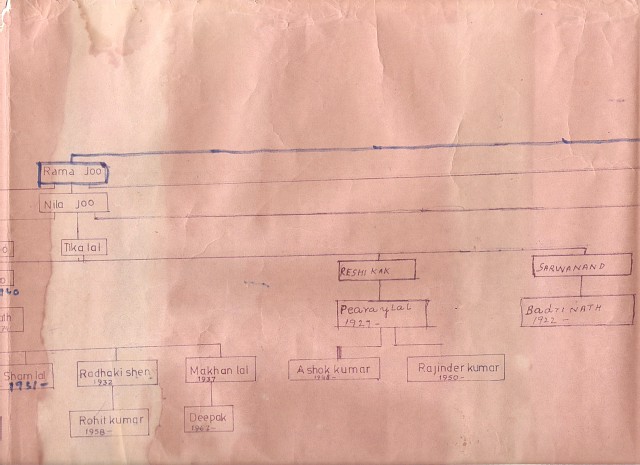 Rama Joo
Nila Joo
Tikalal
RESHI KAK
SARWANAND
PearaylaL
1927-
BadriNATH
1922-
Shamlal
1931-
Radhakishen
1932
Makhan lal
1937
Ashok kumar
Rajinder kumar
1950-
Rohit kumar
1958-
Deepak